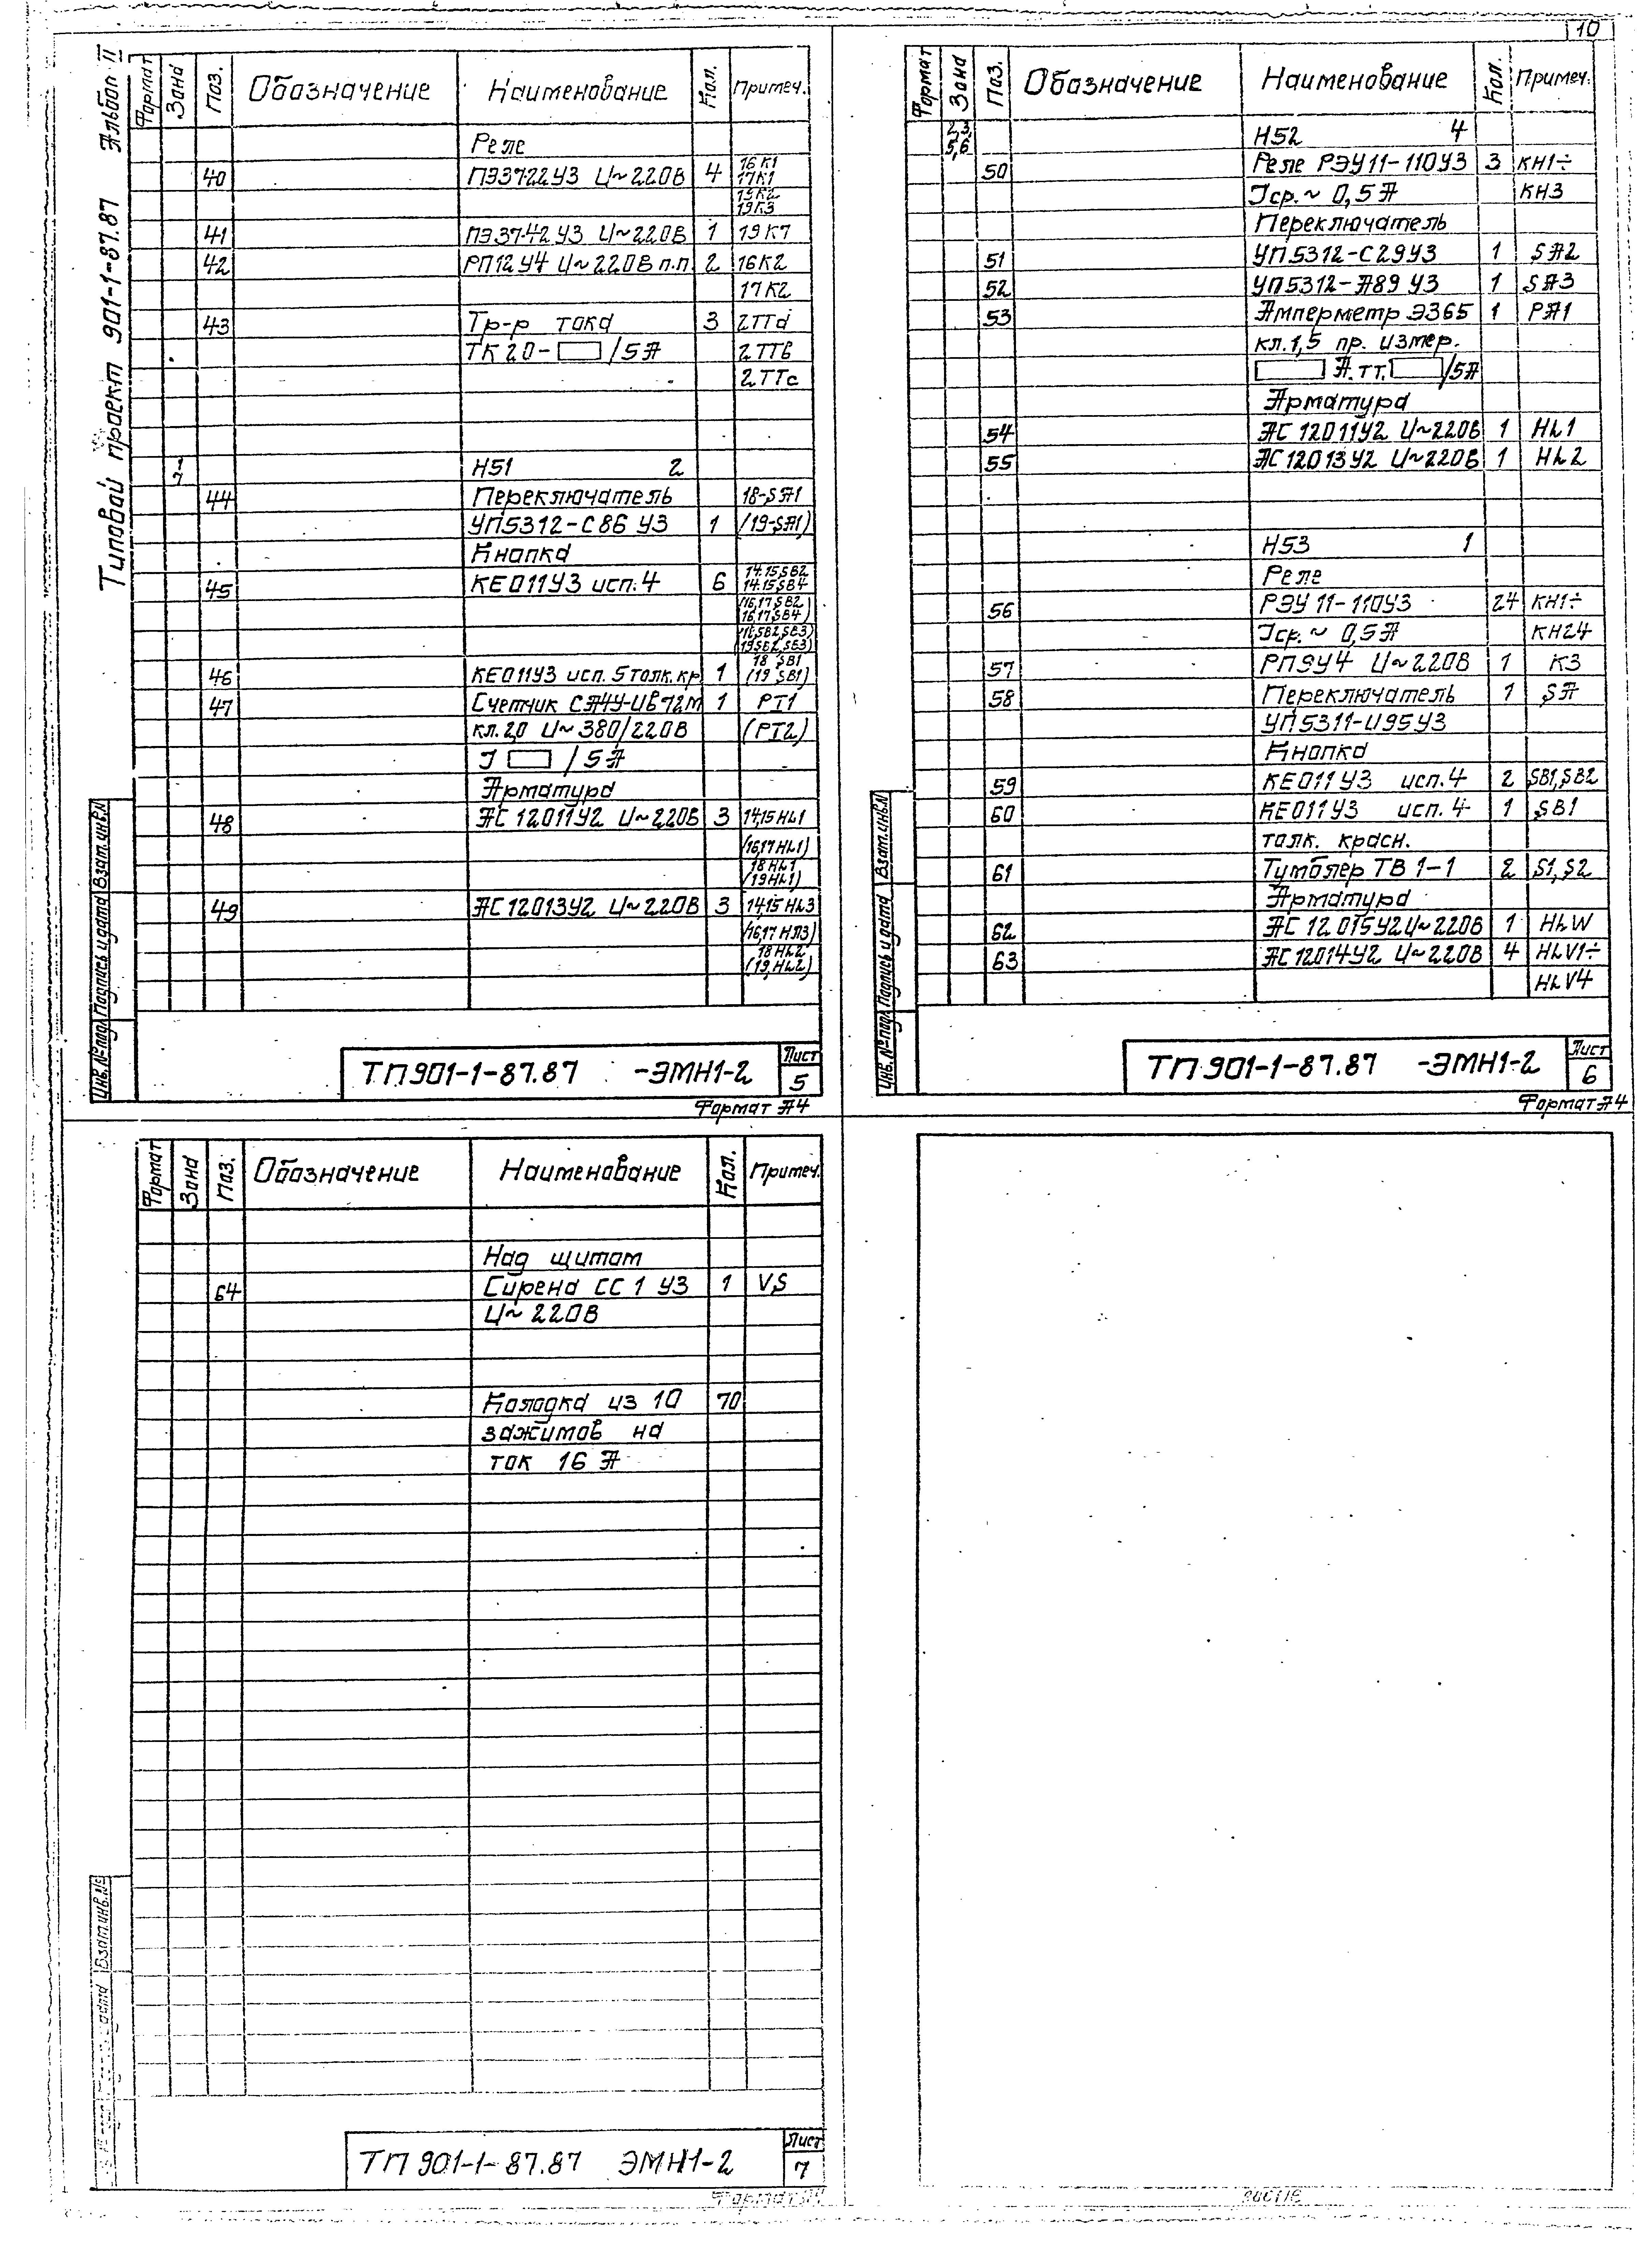 10
Типовой проект 901-1-87.87 Альбом II
Формат Зона Поз. Обозначение Наименование Кол. Примеч.
Реле
40 ПЭ37-22У3 U~220В 4 16К1
17К1
19К2
19К3
41 ПЭ37-42 У3 U~220В 1 19К7
42 РП12У4 U~220В п.п 2 16К2
17К2
43 Тр-р тока 3 2ТТа
ТК20- /5А 2ТТв
2ТТс
1
7 Н51 2
44 Переключатель 18-SA1
УП5312-С86 У3 1 (19-SA1)
Кнопка
45 КЕ011У3 исп.4 6 14.15SB2
14.15SB4
(16,17SB2
16,17SB4)
(19SB2,SB3)
46 КЕ011У3 исп. 5 толк. кр 1 18 SB1
(19 SB1)
47 Счетчик СА4У-И672М 1 PT1
кл. 2,0 U~380/220В (PT2)
I /5А
Арматура
48 АС12011У2 U~220В 3 14,15HL1
(16,17HL1)
18HL1
(19HL1)
49 АС12013У2 U~220В 3 14,15HL3
(16,17HЛ3)
18HL2
(19,HL2)
Инв.№подл Подпись и дата Взам.инв.N
ТП901-1-87.87 -ЭМН1-2 Лист
5
Формат А4
Формат Зона Поз. Обозначение Наименование Кол. Примеч.
2,3,
5,6 Н52 4
50 Реле РЭУ11-110У3 3 КН1÷
Iср.~ 0,5А КН3
Переключатель
51 УП5312-С29У3 1 SA2
52 УП5312-А89 У3 1 SA3
53 Амперметр Э365 1 PA1
кл.1,5 пр. измер.
А.тт. /5А
Арматура
54 АС12011У2 U~220В 1 HL1
55 АС12013У2 U~220В 1 HL2
Н53 1
Реле
56 РЭУ11-110У3 24 КН1÷
Iср.~ 0,5А КН24
57 РП9У4 U~220В 1 К3
58 Переключатель 1 SA
УП5311-И95У3
Кнопка
59 КЕ011У3 исп.4 2 SB1,SB2
60 КЕ011У3 исп. 4 1 SB1
толк. красн.
61 Тумблер ТВ 1-1 2 S1,S2
Арматура
62 АС 12015У2 U~220В 1 HLW
63 АС12014У2 U~220В 4 HLV1÷
HLV4
Инв.№подл Подпись и дата Взам.инв.N
ТП901-1-87.87 -ЭМН1-2 Лист
6
Формат А4
Формат Зона Поз. Обозначение Наименование Кол. Примеч.
Над щитом
64 Сирена СС 1 У3 1 VS
U~ 220В
Колодка из 10 70
зажимов на
ток 16 А
дата Взам.инв.№
ТП 901-1-87.87 ЭМН1-2 Лист
7
Формат А4